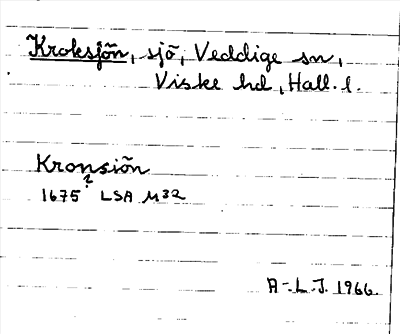 Kroksjön, sjö, Veddige sn,
Viske hd, Hall. l.
Kronsiön
?
1675 LSA M32
A-L.J. 1966.